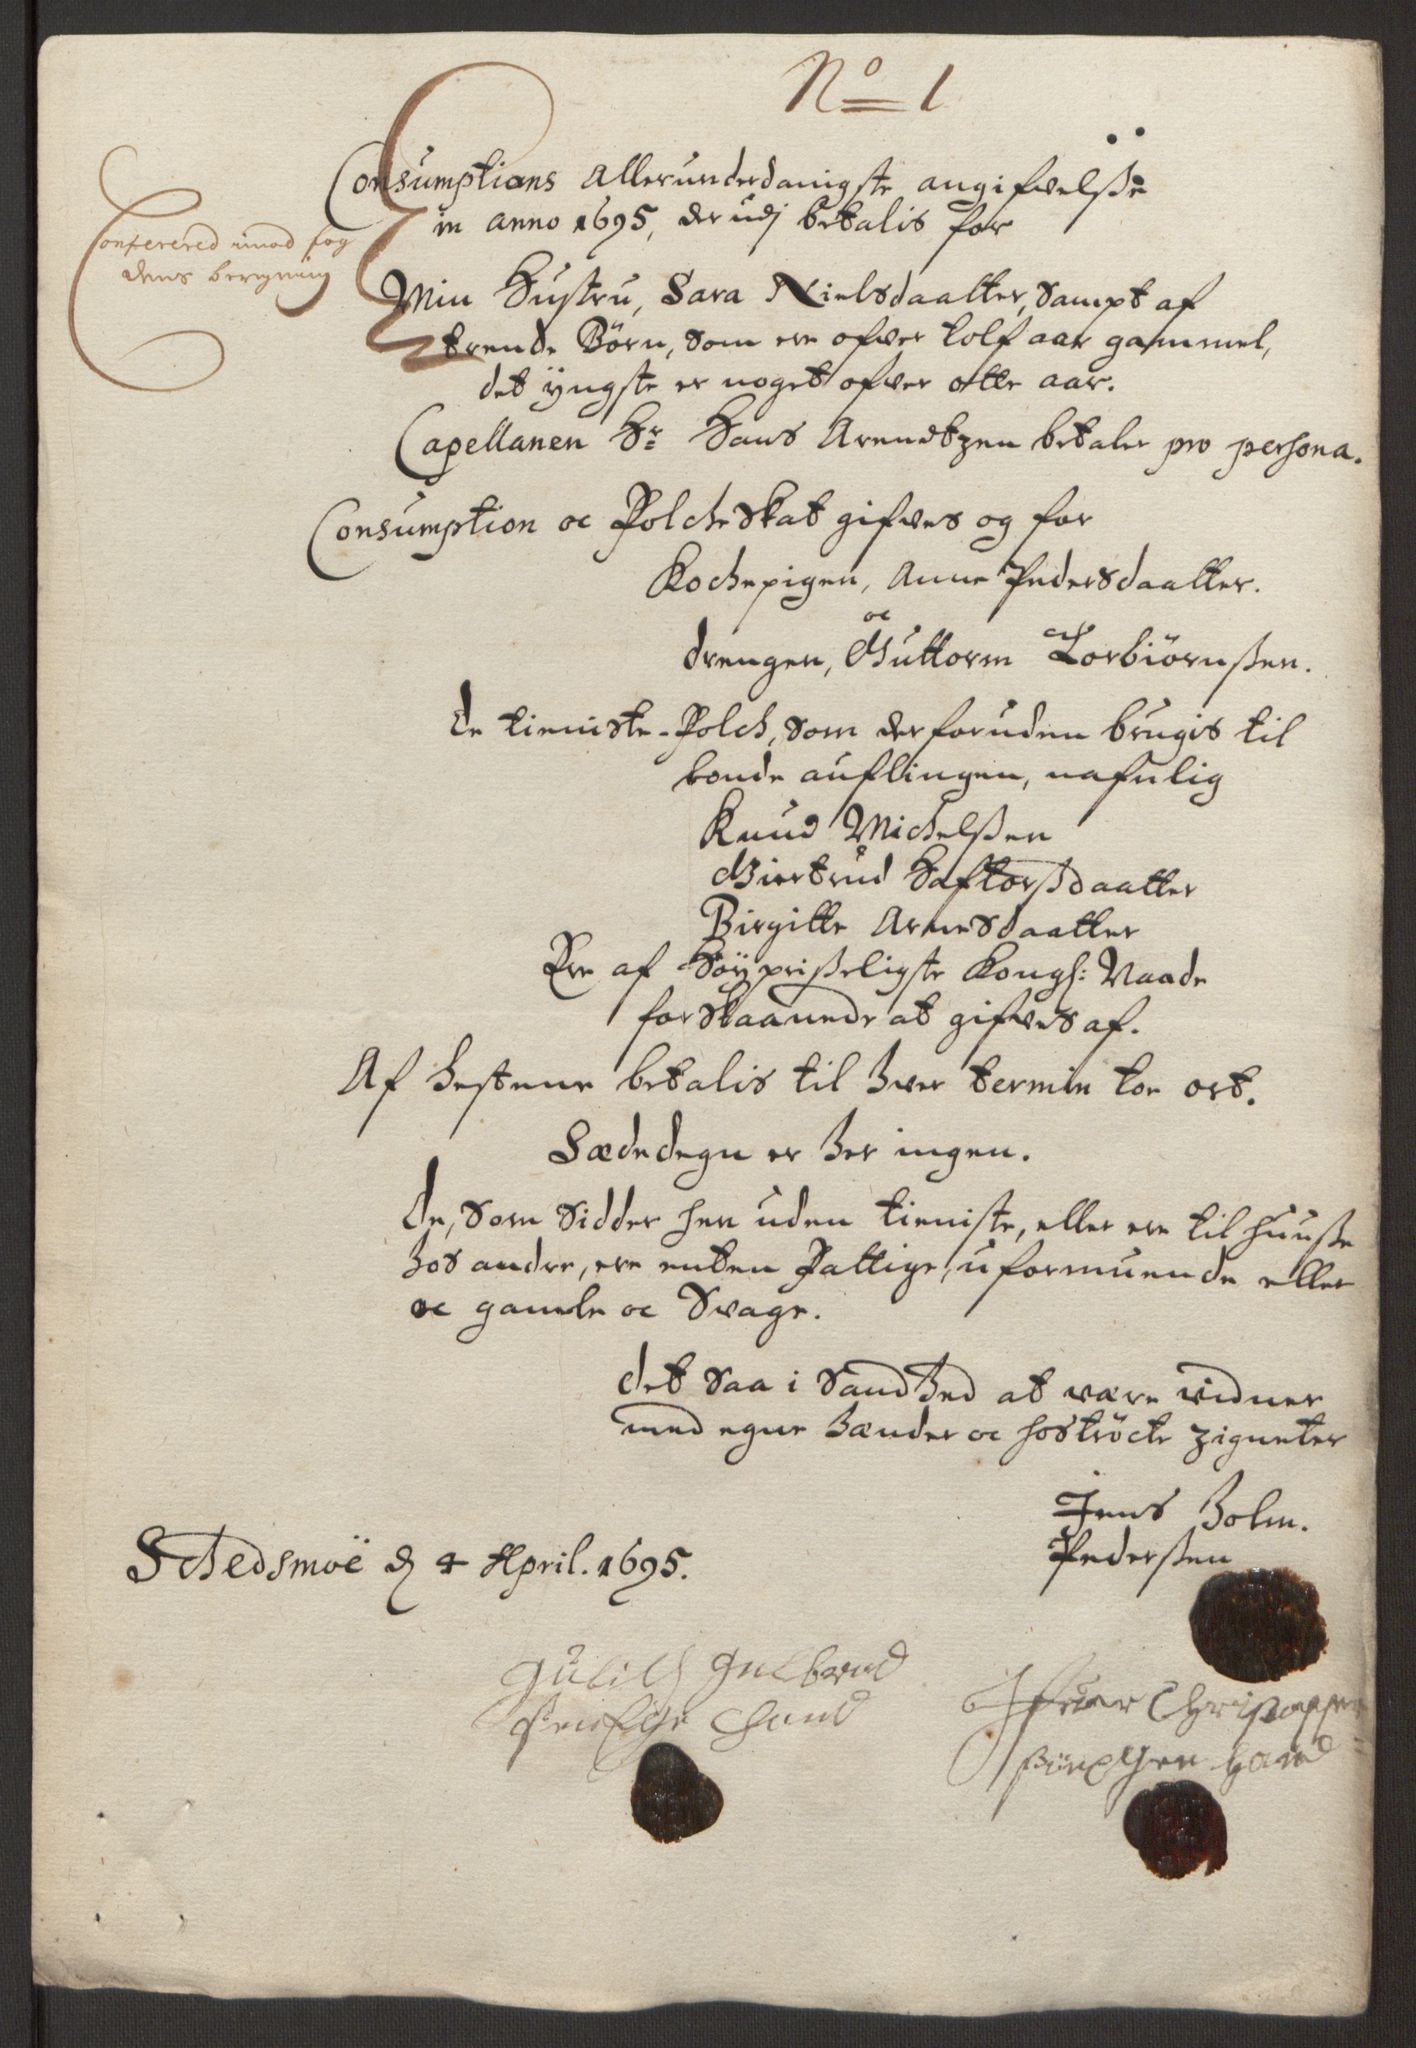 No 1
Consumptions Allerunderdanigste angifvelße
in anno 1695, der udj betalis for
Conferered imod fog
dens beregning
Min Hustru, Sara Nielsdaatter, sampt af
trende Börn, som ere ofver tolf aar gammel,
det ÿngste er noget ofver otte aar.
Capellanen Hr Hans Arendtzen betaler pro persona.
Consumption oc Folcheskat gifves og for
Kochepigen, Anne Pedersdaatter.
oc
drengen, Guttorm Torbiörnßen.
de tieniste-Folch, som derforuden brugis til
bonde auflingen, nafnlig
Knud Michelßen
Giertrud Haftorßdaatter
Birgitte Arnesdaatter
Ere af Höÿprißeligste Kongl: Naade
forskaanede at gifves af.
Af hestene betalis til hver termin toe ort.
Sædedegn er her ingen.
de, som sidder hen uden tieniste, eller ere til huuße
hos andre, ere enten Fattige, uformuende eller
oc gamle oc Svage.
det saa i Sandhed at være vidner
med egne hænder oc hoströcte zigneter
Jens Holm.
Pederßen
Schedsmoë d 4 April. 1695.
Gulich Gulbrand
sen Ege Hand
Christopher
Egen hand